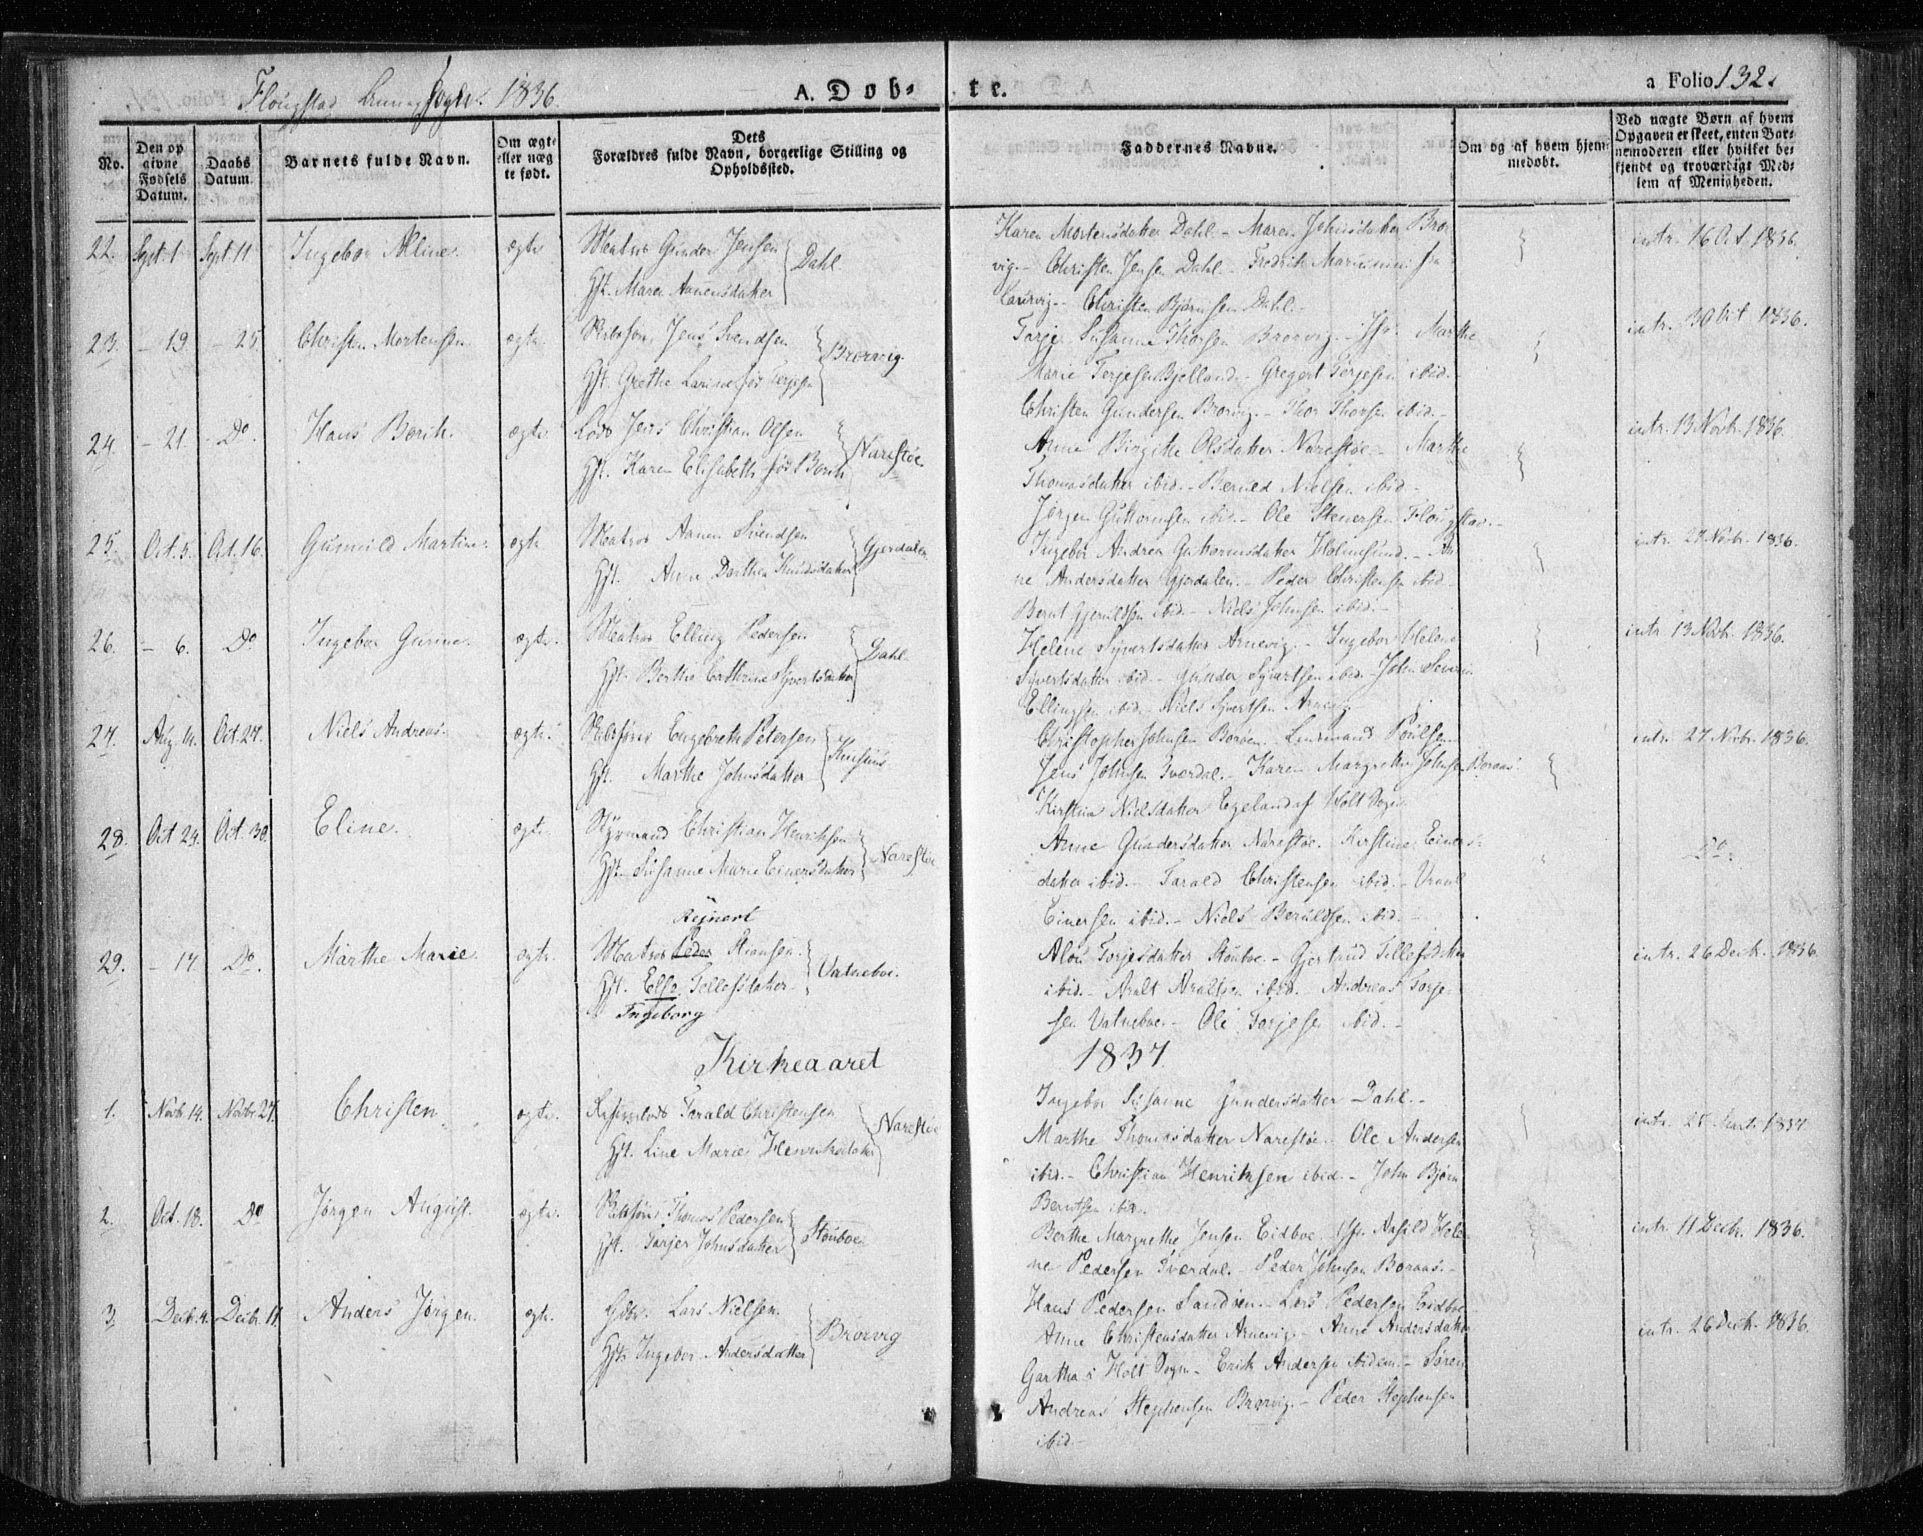 Flougstad Sogn. 1836.
A. Døbte.
a Folio 132.
No.
Den opgivne Fødsels Datum.
Daabs Datum.
Barnets fulde Navn.
Om ægte eller nægte født.
Dets Forældres fulde Navn, borgerlige Stilling og Opholdssted.
Faddernes Navne.
Om og af hvem hjemmedøbt.
Ved nægte Børn af hvem Opgaven er skeet, enten Barnemoderen eller hvilket bekjendt og troværdigt Medlem af Menigheden.
22. Sept. 1 Sept. 11 Ingebor Aline. ægte Matros Gunder Jensen
Hst. Maren Aanensdatter Dahl
Karen Mortensdatter Dahl - Maren Johnsdatter Bro
vig. - Christen Jensen Dahl - Fredrik fra
Laurvig. - Christen Bjørnsen Dahl. -
intr. 16 Oct. 1836.
23. - 19. - 25. Christen Mortensen ægte. Jens Svendsen
Hst. Grethe Larine fød Terjesen Brorvig
Terje Susanne Thorsen Brorvig. - Jfr. Marthe
Marie Terjesen Bjelland. - Gregert Terjesen ibid.
Christen Gundersen Brorvig. - Thor Thorsen ibid. -
intr. 30 Oct 1836.
24. - 21. Do. Hans Borik. ægte. Lods Jens Christian Olsen
Hst. Karen Elisabeth fød Borik Narestøe
Anne Birgitte Olsdatter Narestøe - Marthe
Thomasdatter ibid. - Beruld Nielsen ibid -
Jørgen Guttormsen ibid. - Ole Stenersen Flougstad. -
intr. 13 Novbr. 1836.
25. Oct. 5. Oct. 16. Gunnild Martine. ægte Matros Aanen Svendsen
Hst. Anne Dorthea Knudsdatter Gjerdalen
Ingebor Andrea Guttormsdatter Holmesund. - An
ne Andersdatter Gjerdalen. - Peder Christensen ibid -
Bernt Gjeruldsen ibid - Niels Johnsen ibid. -
intr. 27 Novbr. 1836.
26. - 6. Do Ingebor Gurine. ægte. Matros Elling Pedersen
Hst. Berthe Cathrine Syvertsdatter Dahl
Helene Syvertsdatter Arnevig. - Ingebor Helene
Syvertsdatter ibid - Gunder Syvertsen ibid. John Severin
Ellingsen ibid - Niels Syvertsen Arnevig
intr. 13 Novbr. 1836.
27. Aug. 11. Oct. 27. Niels Andreas. ægte. Engebreth Petersen
Hst. Marthe Johnsdatter
Christopher Johnsen Boröen. - Poulsen
Jens Johnsen Sverdal. - Karen Margrethe Johnsen Boraas
Kirstine Nielsdatter Egeland af Holt Sogn
intr. 27 Novbr. 1836.
28. Oct 23. Oct. 30. Eline. ægte. Styrmand Christian Henriksen
Hst. Susanne Marie Einersdatter Narestøe
Anne Gundersdatter Narestøe. Kirstine Einers-
datter ibid. - Tarald Christensen ibid. -
Einersen ibid. - Niels Beruldsen ibid. -
Do.
29. - 17. Do. Marthe Marie. ægte. Rejnert
Matros Peder Hansen.
Hst. Else Tellefsdatter Vatneboe.
Ingeborg
Terjesdatter Stauboe. - Gjertrud Tellefsdatter
ibid. - Aralt Araltsen ibid. Andreas Torje-
sen Vatneboe. - Ole Torjesen ibid. -
intr. 26 Decbr. 1836.
Kirkeaaret 1837
1. Novb. 14. Novbr. 27. Christen ægte. Tarald Christensen
Hst. Line Marie Henriksdatter Narestøe
Ingebor Susanne Gundersdatter Dahl. -
Marthe Thomasdatter Narestøe. Ole Andersen
ibid. - Christian Henriksen ibid. - John Bjørn
Berntsen ibid.
intr. 25 1837
2. Oct. 18. Do Jørgen August. ægte. Thomas Pedersen
Hst. Torjer Johnsdatter Stauboe
Berthe Margrethe Jensen Eidboe. Jfr. Aasild Hele
ne Pedersen Sverdal. - Peder Johnsen Boraas. -
Hans Pedersen Sandöen. - Lars Pedersen Eidboe
intr. 11 Decbr. 1836.
3. Decbr. 4. Decbr. 11. Anders Jørgen. ægte. Gdbr. Lars Nielsen
Hst. Ingebor Andersdatter Brorvig
Anne Christensdatter Arnevig. - Anne Andersdatter
Gartha i Holt Sogn - Erik Andersen ibidem. - Søren
Andreas Stephensen Brorvig. - Peder Stephensen
ibid -
intr. 26 Decbr. 1836.